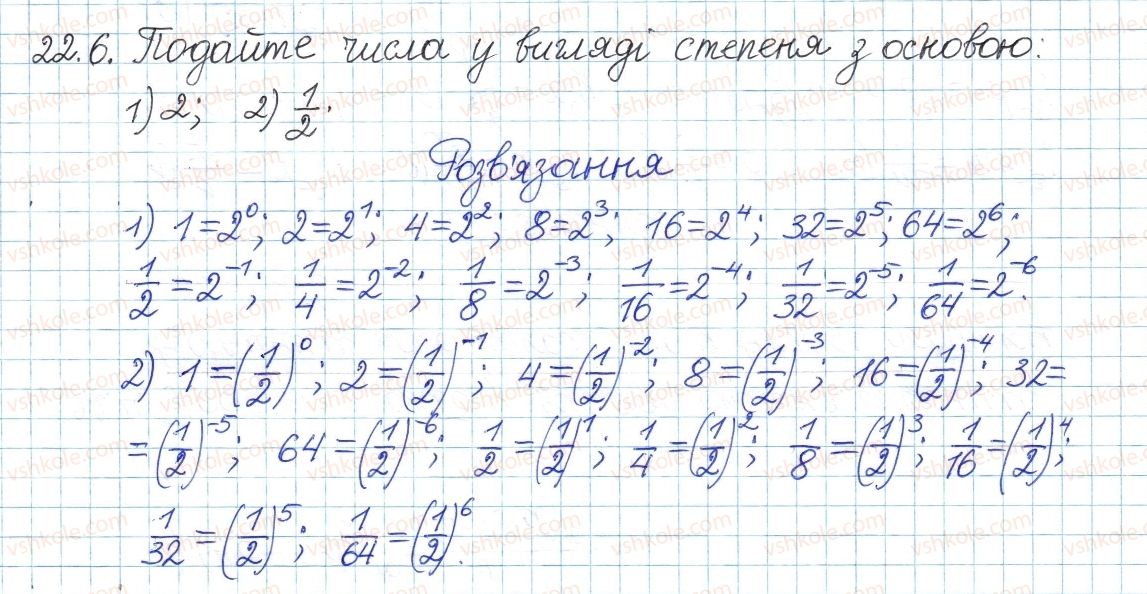 22.6. Подайте числа у вигляді степеня з основою:
1) 2; 2) 1/2.
Розв'язання
1) 1=2⁰; 2=2¹; 4=2²; 8=2³; 16=2⁴; 32=2⁵; 64=2⁶;
1/2=2⁻¹; 1/4=2⁻²; 1/8=2⁻³; 1/16=2⁻⁴; 1/32=2⁻⁵; 1/64=2⁻⁶.
2) 1=(1/2)⁰; 2=(1/2)⁻¹; 4=(1/2)⁻²; 8=(1/2)⁻³; 16=(1/2)⁻⁴; 32=
=(1/2)⁻⁵; 64=(1/2)⁻⁶; 1/2=(1/2)¹; 1/4=(1/2)²; 1/8=(1/2)³; 1/16=(1/2)⁴;
1/32=(1/2)⁵; 1/64=(1/2)⁶.
vshkole.com